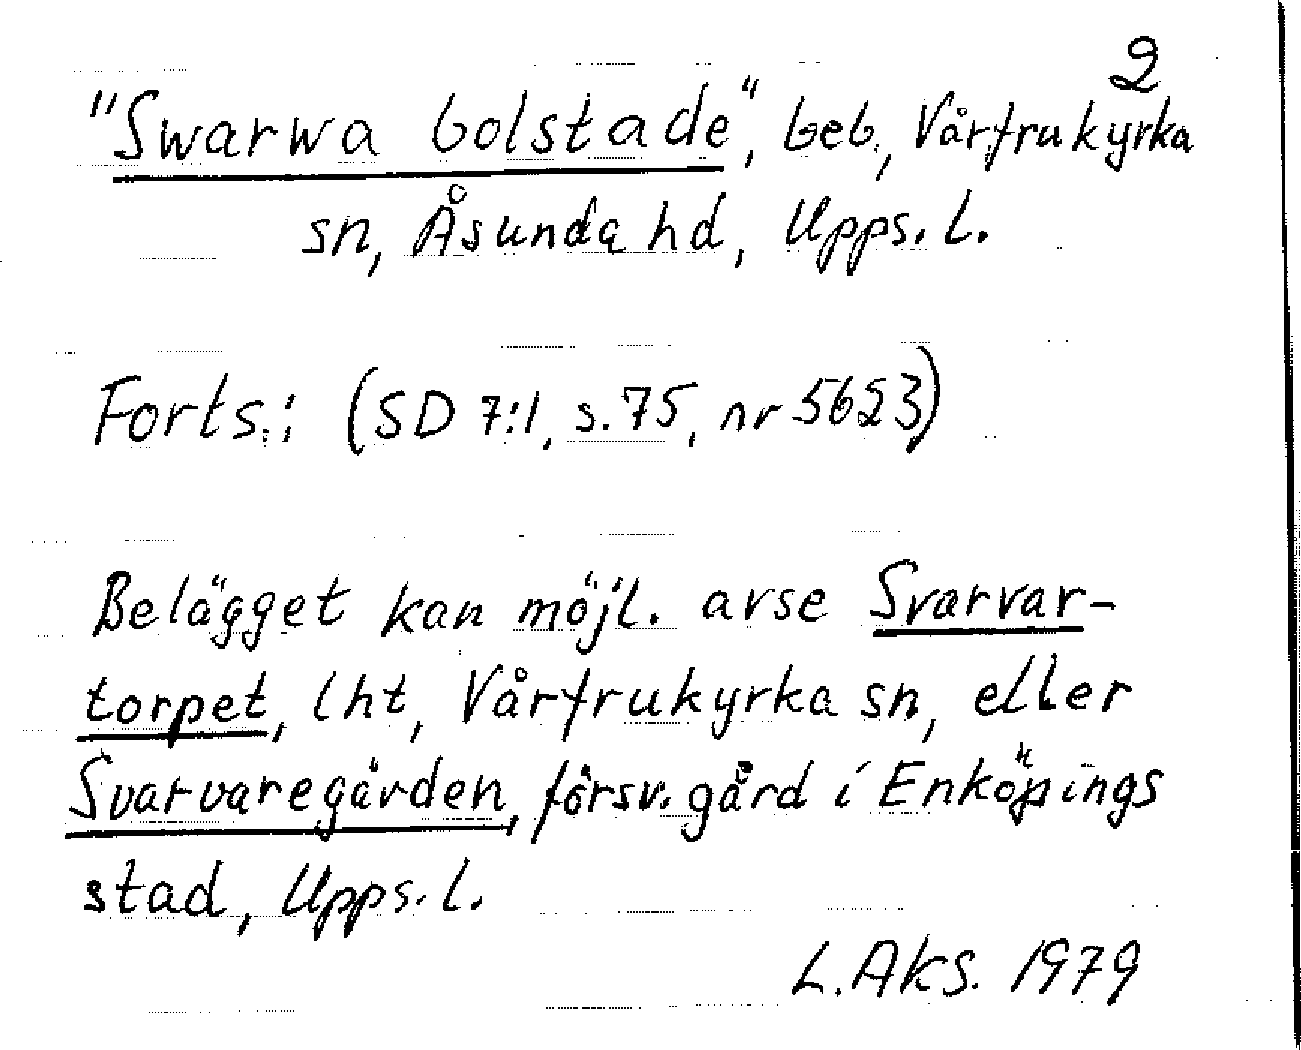 2
"Swarwa bolstade", beb., Vårfrukyrka
sn, Åsunda hd, Upps. l.
Forts.: (SD 7:1, s. 75, nr 5623)
Belägget kan möjl. avse Svarvar-
torpet, lht, Vårfrukyrka sn, eller
Svarvaregården, försv. gård i Enköpings
stad, Upps. l.
L. Aks. 1979